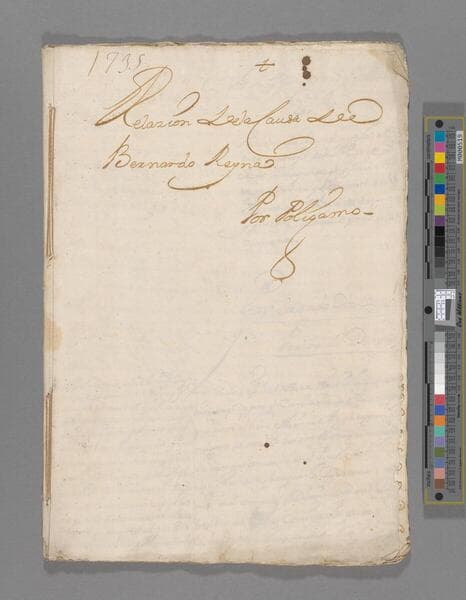 1735
Relazion de la Causa de
Bernardo Reyna
Por Poligamo
M000519